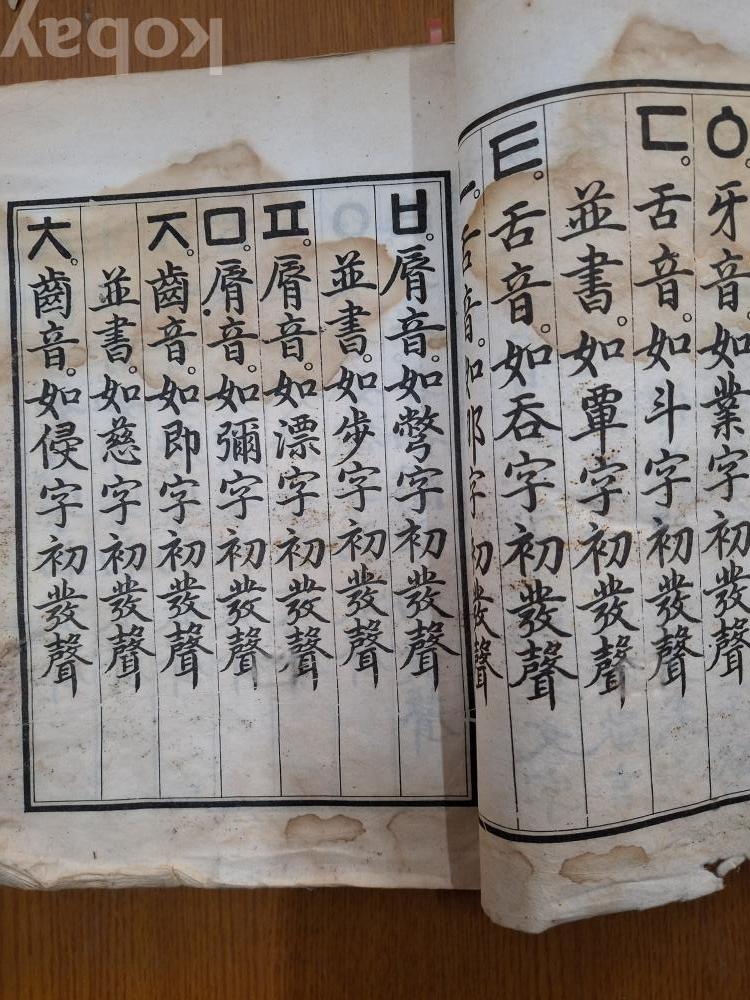 ㆁ。牙音。如業字初發聲
ㄷ。舌音。如斗字初發聲
並書。如覃字初發聲
ㅌ。舌音。如呑字初發聲
舌音。如那字初發聲
ㅂ。脣音。如彆字初發聲
並書。如步字初發聲
ㅍ。脣音。如漂字初發聲
ㅁ。脣音。如彌字初發聲
ㅈ。齒音。如即字初發聲
並書。如慈字初發聲
ㅊ。齒音。如侵字初發聲
kobay